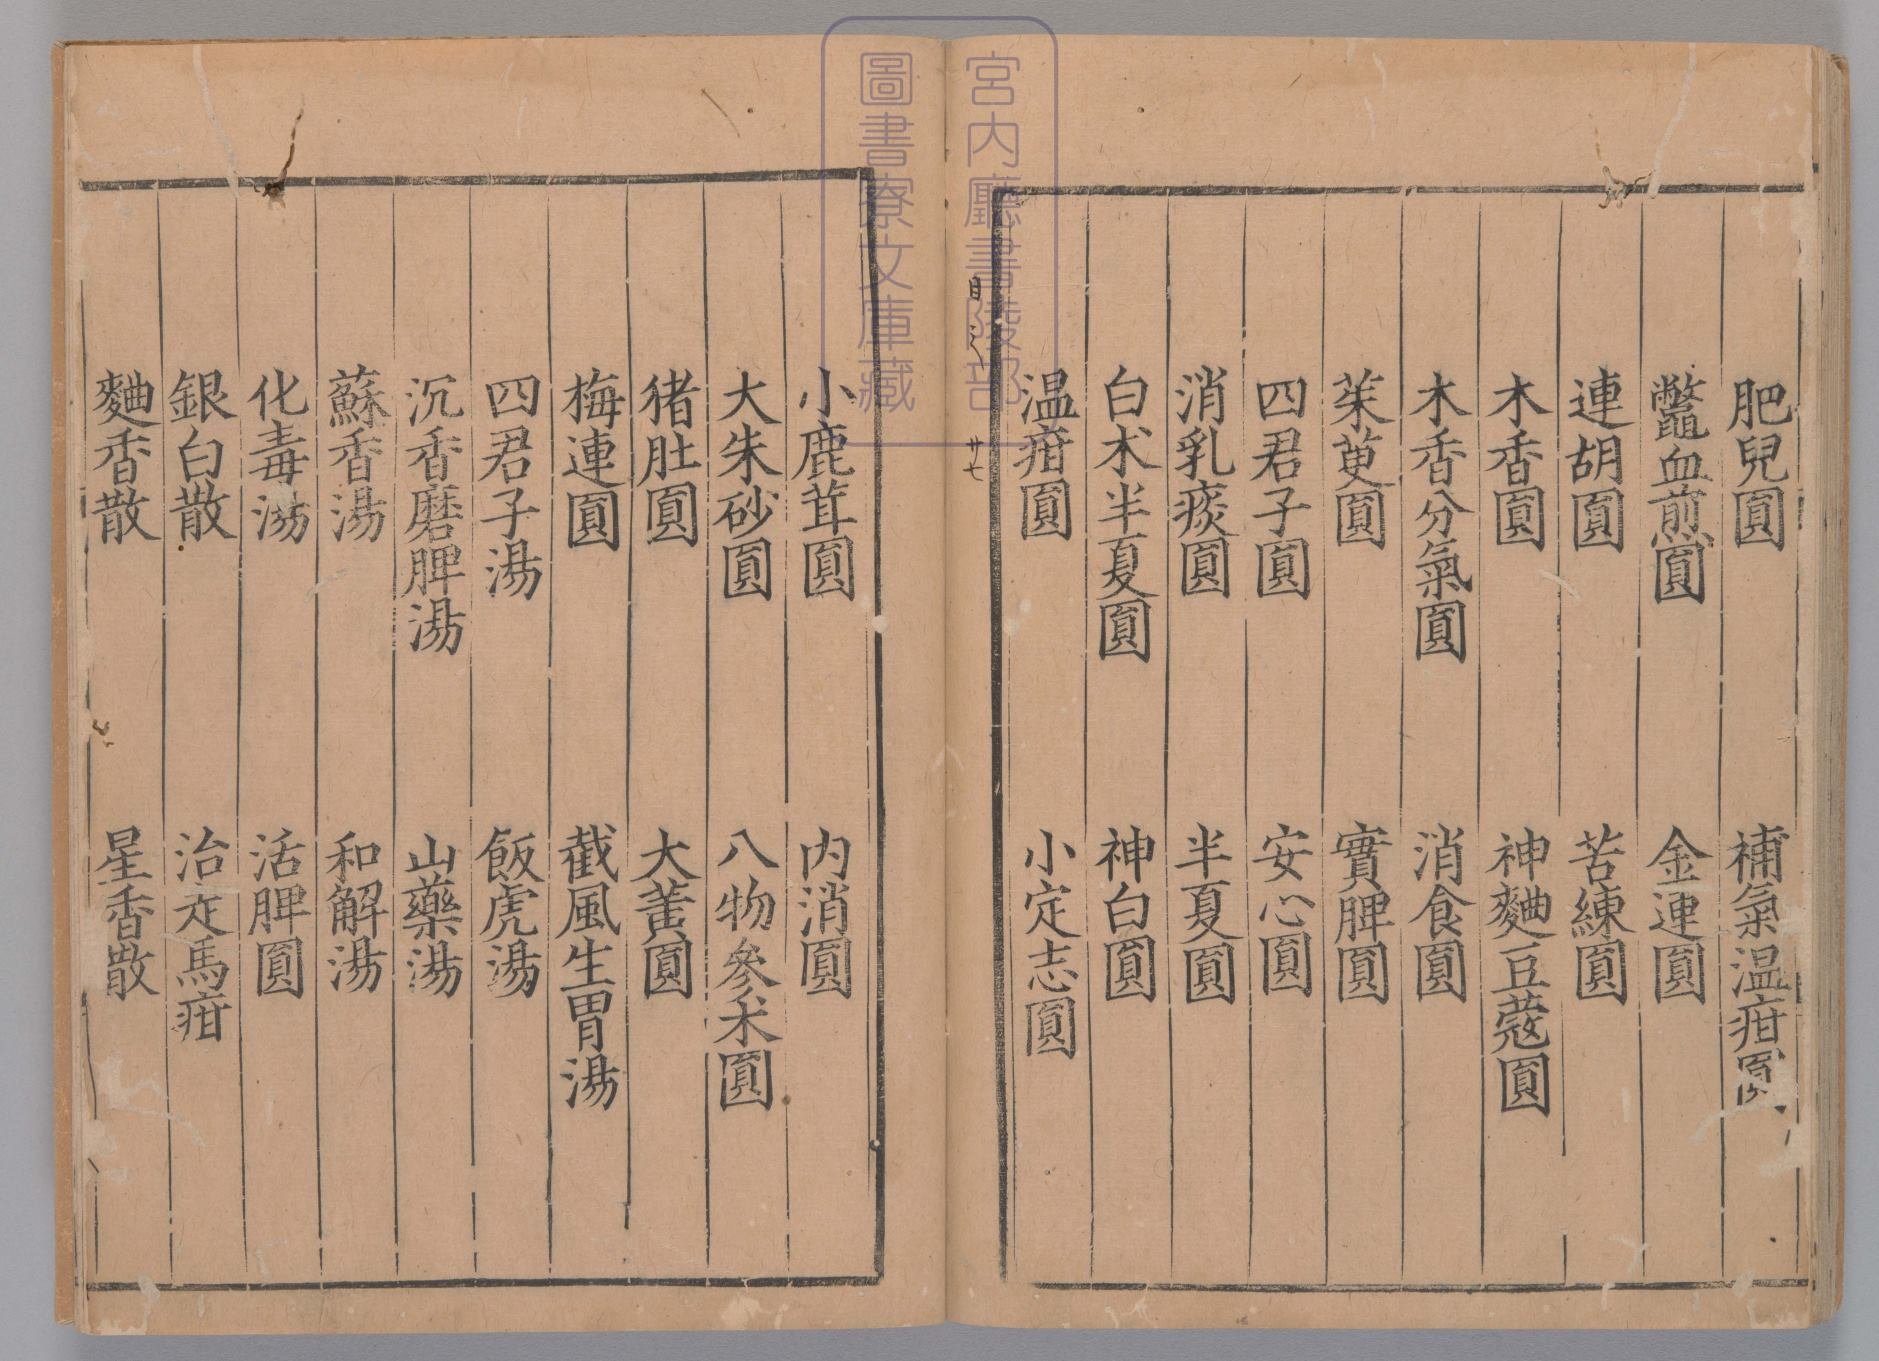 肥兒圓　補氣温疳圓
鼈血煎圓　金連圓
連胡圓　苦練圓
木香圓　神麯豆蔻圓
木香分氣圓　消食圓
茱萸圓　實脾圓
四君子圓　安心圓
消乳痰圓　半夏圓
白朮半夏圓　神白圓
温疳圓　小定志圓
廿七
小鹿茸圓　内消圓
大朱砂圓　八物參朮圓
猪肚圓　大黄圓
梅連圓　截風生胃湯
四君子湯　飯虎湯
沉香磨脾湯　山藥湯
蘇香湯　和解湯
化毒湯　活脾圓
銀白散　治走馬疳
麯香散　星香散
宮内廳書陵部
圖書寮文庫藏